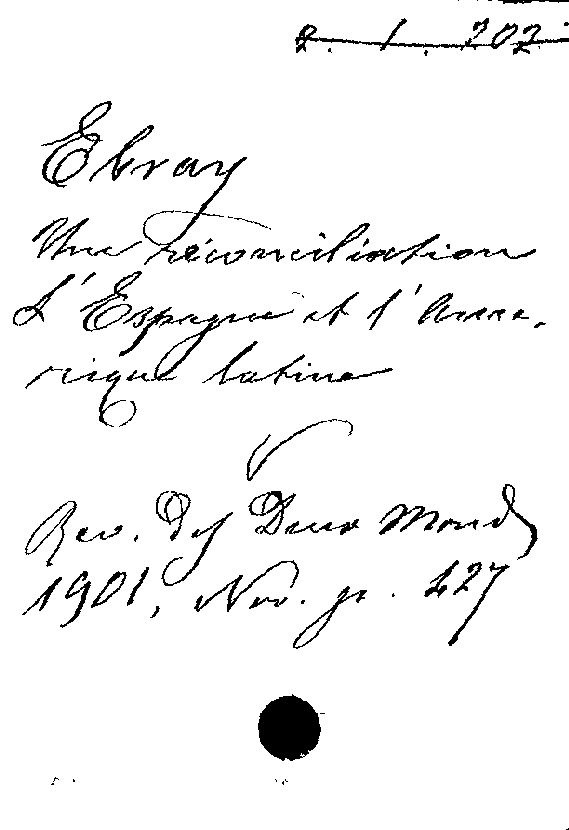 2. 1. 202
Ebray
Une réconciliation
L'Espagne et l'Amé-
rique latine
Rev. des Deux Mond
1901, Nov. p. 127